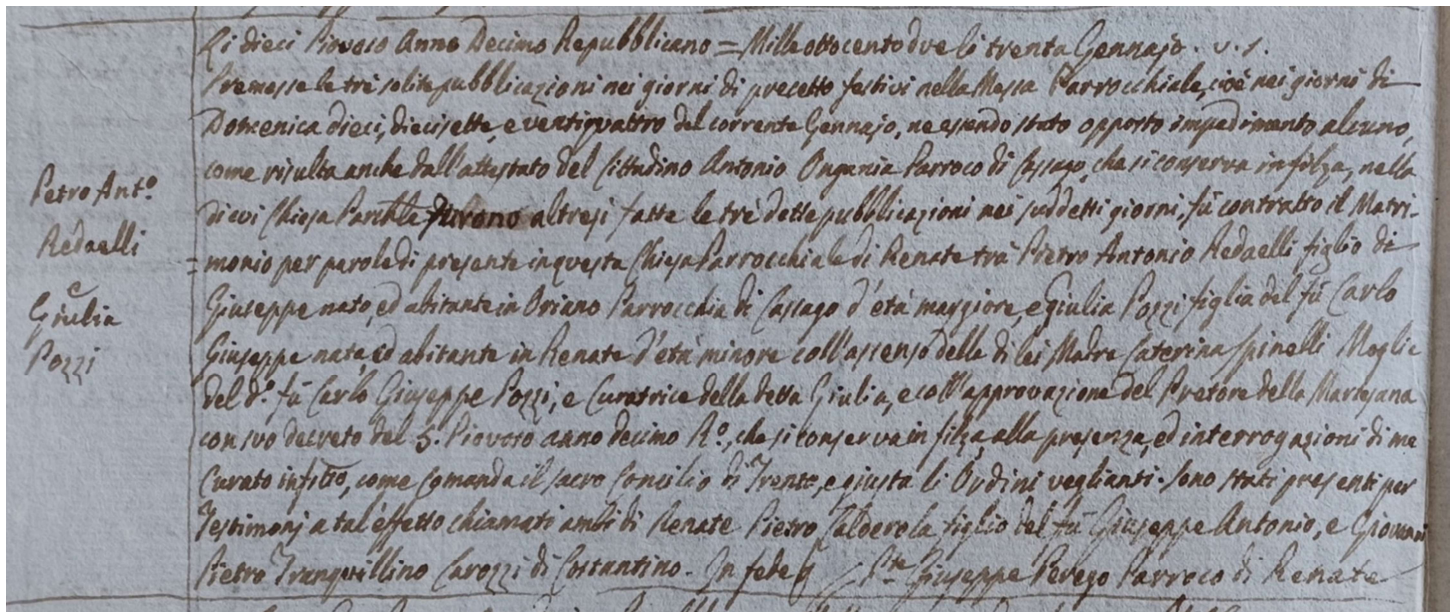 Li dieci Piovoso Anno Decimo Repubblicano = Mille ottocento due li trenta Gennajo. v. s.
Premesse le tre solite pubblicazioni nei giorni di precetto festivi nella Messa Parrocchiale, cioè nei giorni di
Domenica dieci, diecisette, e ventiquattro del corrente Gennajo, ne essendo stato opposto impedimento alcuno,
come risulta anche dall'attestato del Cittadino Antonio Ongania Parroco di Cassago, che si conserva in filza, nella
di cui Chiesa Parr.le furono altresi fatte le trè dette pubblicazioni nei suddetti giorni, fù contratto il Matri-
monio per parole di presente in questa Chiesa Parrocchiale di Renate trà Pietro Antonio Redaelli figlio di
Giuseppe nato, ed abitante in Oriano Parrocchia di Cassago d'età maggiore, e Giulia Pozzi figlia del fù Carlo
Giuseppe nata, ed abitante in Renate d'età minore coll'assenso della di lei Madre Caterina Spinelli Moglie
del d.o fù Carlo Giuseppe Pozzi, e Curatrice della detta Giulia, e coll'approvazione del Pretore della Martesana
con suo decreto del 5. Piovoso anno decimo R.o, che si conserva in filza, alla presenza, ed interrogazioni di me
Curato infrto, come comanda il sacro Concilio di Trento, e giusta li Ordini veglianti. Sono stati presenti per
Testimonj a tal effetto chiamati ambi di Renate Pietro Calderola figlio del fù Giuseppe Antonio, e Giovanni
Pietro Tranquillino Carozzi di Costantino. In fede
P.te Giuseppe Perego Parroco di Renate
Petro Ant.o
Redaelli
e
Giulia
Pozzi